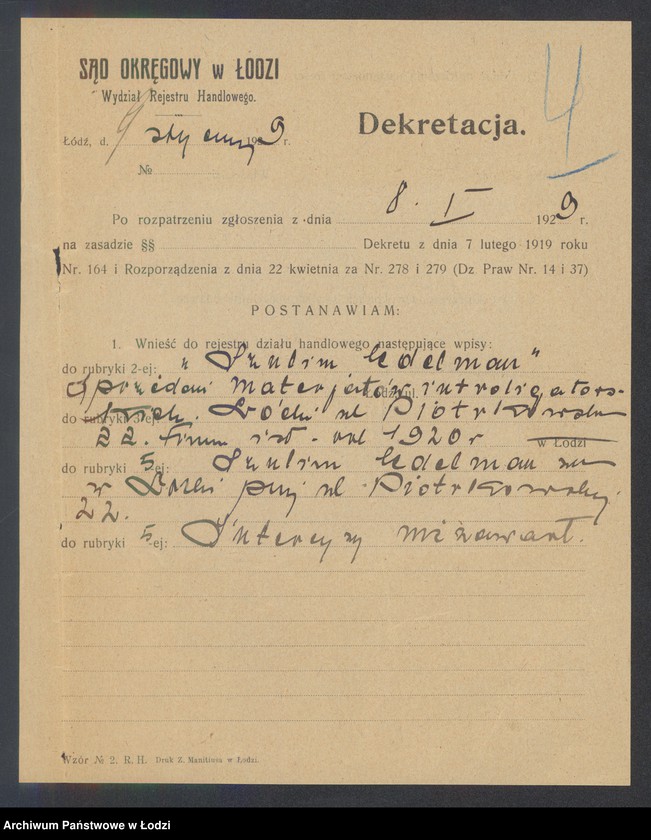 SĄD OKRĘGOWY w ŁODZI
Wydział Rejestru Handlowego.
4
Dekretacja.
Łódź, d. 9 stycznia 1929 r.
№
Po rozpatrzeniu zgłoszenia z dnia 8. I 1929 r.
na zasadzie §§ Dekretu z dnia 7 lutego 1919 roku
Nr. 164 i Rozporządzenia z dnia 22 kwietnia za Nr. 278 i 279 (Dz Praw Nr. 14 i 37)
POSTANAWIAM:
1. Wnieść do rejestru działu handlowego następujące wpisy:
do rubryki 2-ej: „Szulim Edelman"
Sprzedaż materjałów introligators-
do rubryki 3-ej: kich. Łódź ul Piotrkowska
22. Firma ist. od 1920 r w Łodzi
do rubryki 5-ej: Szulim Edelman zam
w Łodzi przy ul. Piotrkowskiej
22.
do rubryki 5-ej: Intercyzy nie zawarł.
Wzór № 2. R. H. Druk Z. Manitiusa w Łodzi.
Archiwum Państwowe w Łodzi